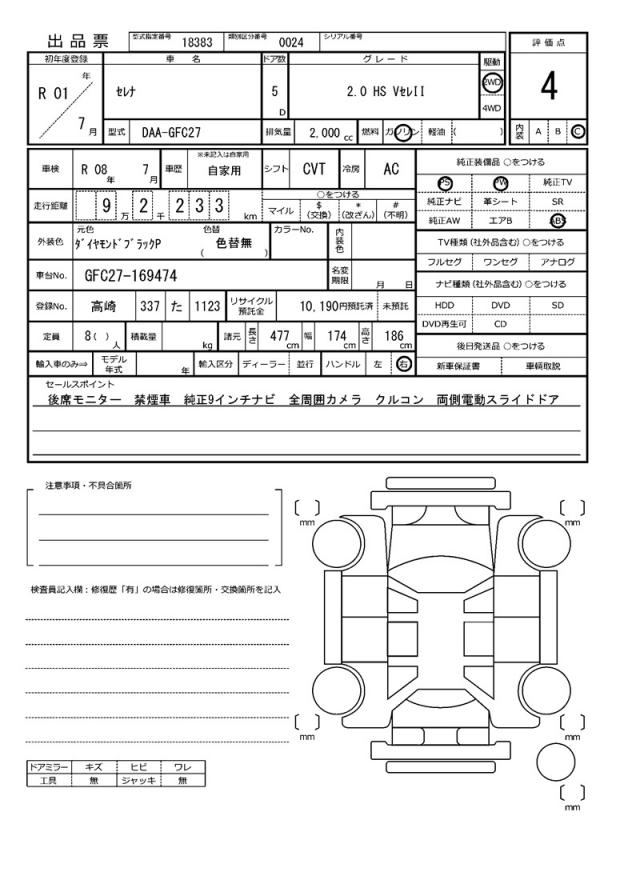 出品票 型式指定番号 18383 類別区分番号 0024 シリアル番号
評価点
初年度登録 車名 ドア数 グレード 駆動
R 01 年 7月 セレナ 5 D 2.0 HS VセレII 2WD 4WD
4
型式 DAA-GFC27 排気量 2,000 cc 燃料 ガソリン 軽油 ( )
内装 A B C
車検 R 08年 7月 車歴 ※未記入は自家用 自家用 シフト CVT 冷房 AC
純正装備品 ○をつける
PS PW 純正TV
純正ナビ 革シート SR
純正AW エアB ABS
走行距離 9万2千233 km
○をつける
マイル $(交換) *(改ざん) #(不明)
外装色 元色 ダイヤモンドブラックP 色替 ( 色替無 ) カラーNo. 内装色
TV種類 (社外品含む) ○をつける
フルセグ ワンセグ アナログ
車台No. GFC27-169474 名変期限 月 日
ナビ種類 (社外品含む) ○をつける
HDD DVD SD
DVD再生可 CD
登録No. 高崎 337 た 1123 リサイクル預託金 10,190円預託済 未預託
定員 8( )人 積載量 kg 諸元 長さ 477cm 幅 174cm 高さ 186cm
後日発送品 ○をつける
新車保証書 車輌取説
輸入車のみ⇒ モデル年式 年 輸入区分 ディーラー 並行 ハンドル 左 右
セールスポイント
後席モニター 禁煙車 純正9インチナビ 全周囲カメラ クルコン 両側電動スライドドア
注意事項・不具合箇所
mm
mm
検査員記入欄：修復歴「有」の場合は修復箇所・交換箇所を記入
mm
mm
ドアミラー キズ ヒビ ワレ
工具 無 ジャッキ 無
mm